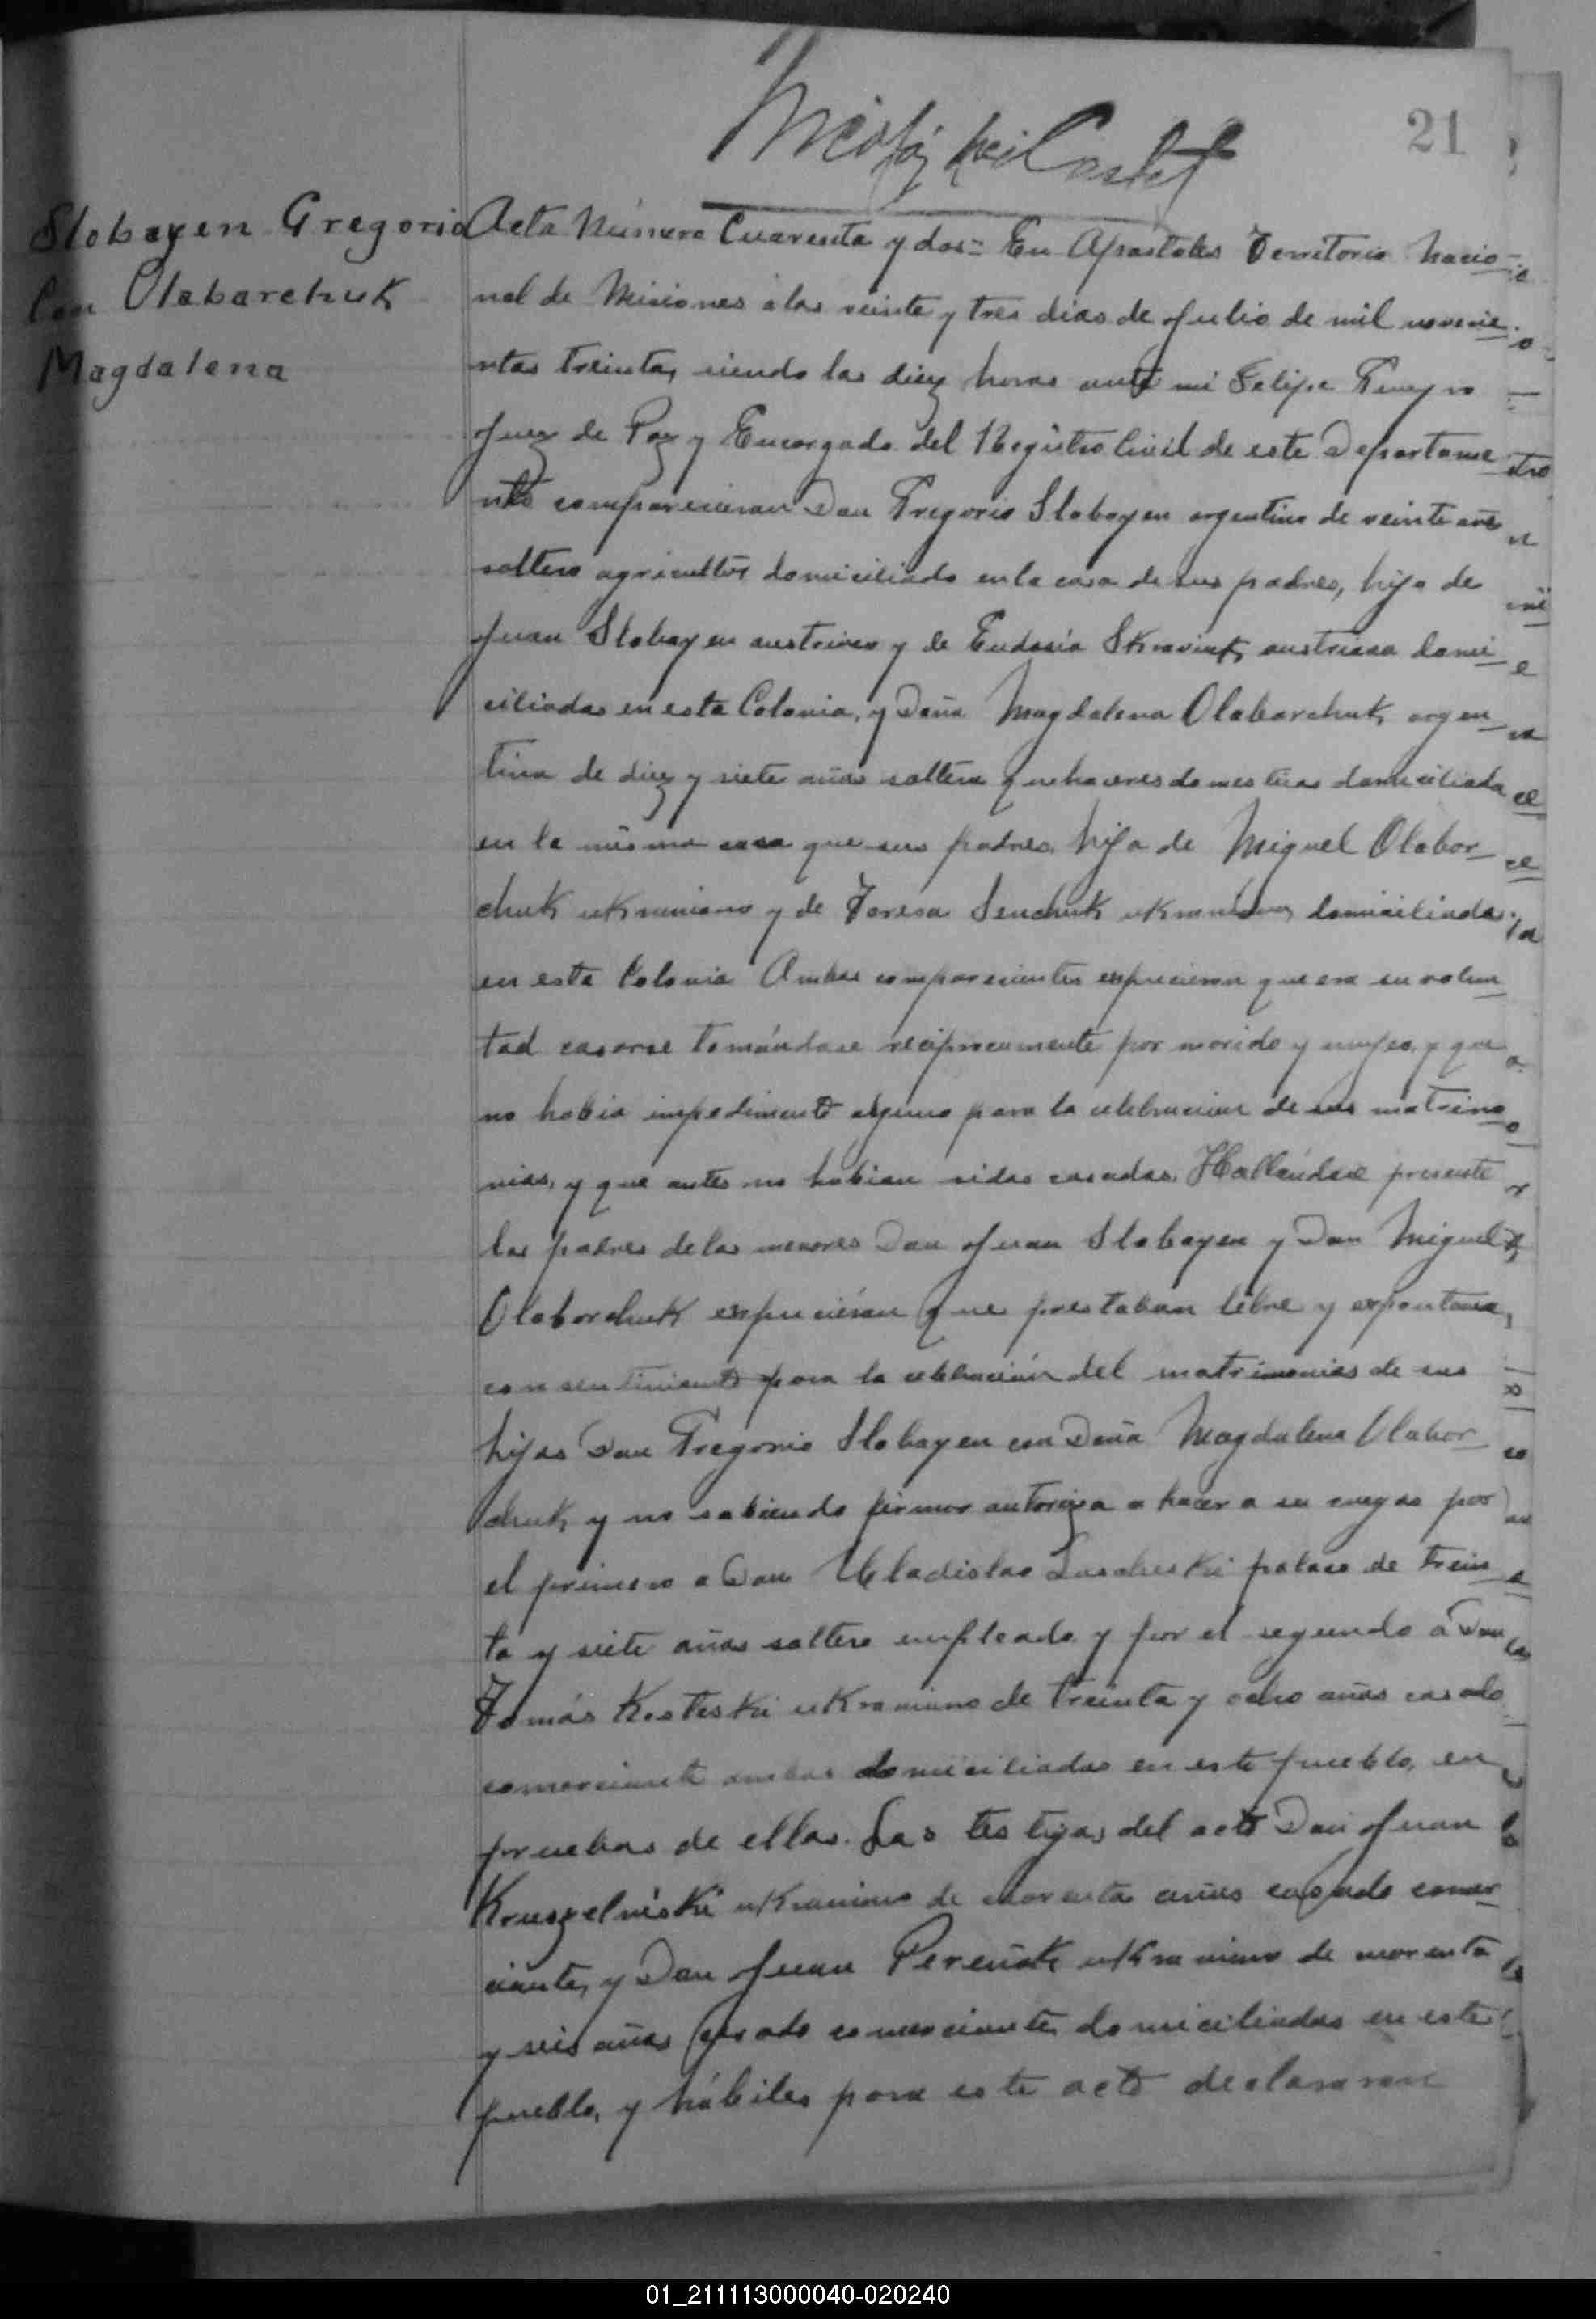 21
Slobayen Gregorio
Con Olabarchuk
Magdalena
Acta Número Cuarenta y dos= En Apostoles Territorio Nacio-
nal de Misiones a los veinte y tres dias de Julio de mil novecie-
ntos treinta, siendo las diez horas ante mi Felipe
Juez de Paz y Encargado del Registro Civil de este Departame-
nto comparecieron Don Gregorio Slobayen argentino de veinte años
soltero agricultor domiciliado en la casa de sus padres, hijo de
Juan Slobayen austriaco y de Eudosia austriaca domi-
ciliados en esta Colonia, y Doña Magdalena Olabarchuk argen-
tina de diez y siete años soltera quehaceres domesticos domiciliada
en la misma casa que sus padres, hija de Miguel Olabar-
chuk ukraniano y de Teresa Senchuk ukraniana, domiciliados
en esta Colonia Ambos comparecientes expucieron que era su volun-
tad casarse tomándose reciprocamente por marido y mujer, y que
no habia impedimento alguno para la celebracion de sus matrimo-
nios, y que antes no habian sidos casados. Hallándose presente
los padres de los menores Don Juan Slobayen y Don Miguel
Olabarchuk expucieron que prestaban libre y expontanea,
consentimiento para la celebración del matrimonios de sus
hijos Don Gregorio Slobayen con Doña Magdalena Olabar-
chuk, y no sabiendo firmar autoriza a hacer a su ruegos por
el primero a Don Uladislao polaco de trein-
ta y siete años soltero empleado y por el segundo a Don
Tomás Kosteski ukraniano de treinta y ocho años casado
comerciante ambos domiciliados en este pueblo, en
pruebas de ellos. Los testigos del acto Don Juan
Kruszelniski ukraniano de cuarenta años casado comer-
ciante, y Don Juan ukraniano de cuarenta
y seis años casado comerciante domiciliados en este
pueblo, y hábiles para este acto declararon
01_211113000040-020240